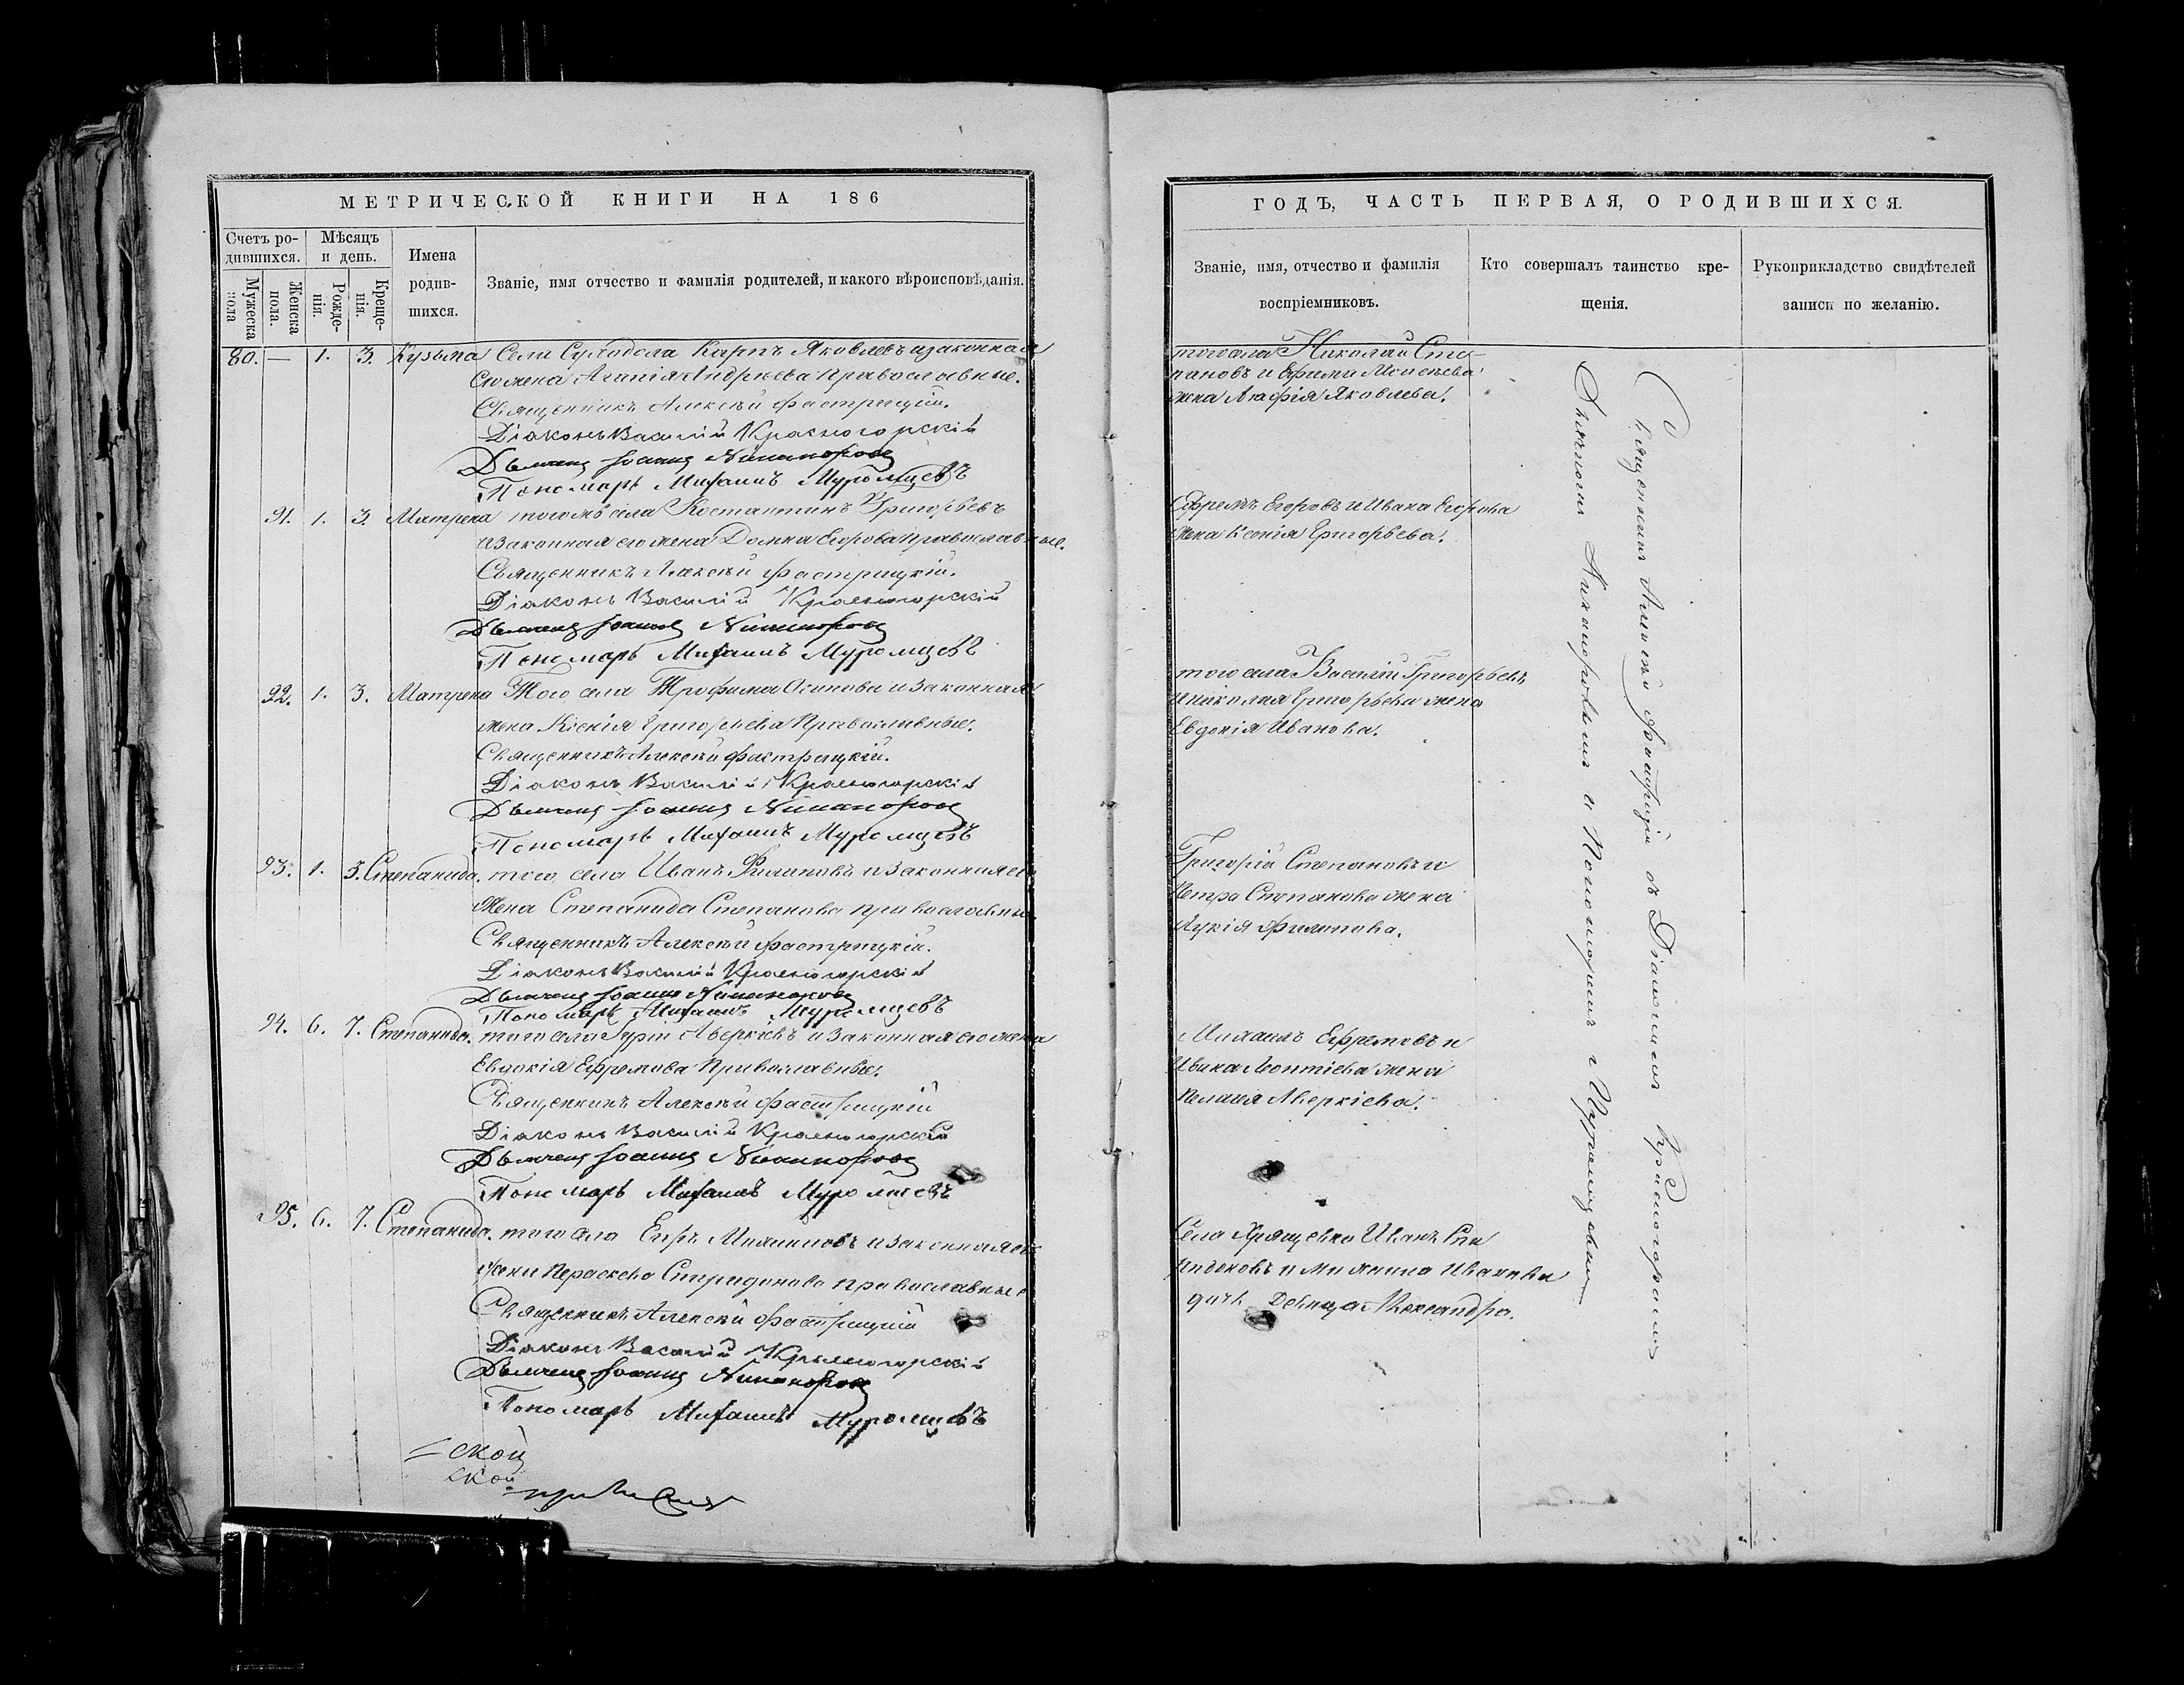 МЕТРИЧЕСКОЙ КНИГИ НА 186
Счетъ ро-
дившихся.
Мѣсяцъ
и день.
Имена
родив-
шихся.
Званіе, имя отчество и фамилія родителей, и какого вѣроисповѣданія.
Мужеска
пола
Женска
пола.
Рожде-
нія.
Креще-
нія.
80. — 1. 3. Кузьма Села Карпъ Яковлевъ и законная
его жена Агапія Андреева православные.
Священникъ Алексѣй Фастрицкій.
Діаконъ Василій Красногорскій
Дьячекъ Іоаннъ Никаноровъ
Пономарь Михаилъ Муромцевъ
91. 1. 3. Матрена того же села Костантинъ Григорьевъ
и законная его жена Домна Егорова православные.
Священникъ Алексѣй Фастрицкій.
Діаконъ Василій Красногорскій
Дьячекъ Іоаннъ Никаноровъ
Пономарь Михаилъ Муромцевъ
92. 1. 3. Матрена Того села Трофима Осипова и законная
жена Ксенія Григорьева Православные.
Священникъ Алексѣй Фастрицкій.
Діаконъ Василій Красногорскій
Дьячекъ Іоаннъ Никаноровъ
Пономарь Михаилъ Муромцевъ
93. 1. 3. Степанида. того села Иванъ Филиповъ и законная его
жена Степанида Степанова православные.
Священникъ Алексѣй Фастрицкій.
Діаконъ Василій Красногорскій
Дьячекъ Іоаннъ Никаноровъ
Пономарь Михаилъ Муромцевъ
94. 6. 7. Степанида. того села Гурій Аверкіевъ и законная его жена
Евдокія Ефремова Православные.
Священникъ Алексѣй Фастрицкій
Діаконъ Василій Красногорскій
Дьячекъ Іоаннъ Никаноровъ
Пономарь Михаилъ Муромцевъ
95. 6. 7. Степанида. того села Егоръ и законная его
жена Параскева Спиридонова православные
Священникъ Алексѣй Фастрицкій
Діаконъ Василій Красногорскій
Дьячекъ Іоаннъ Никаноровъ
Пономарь Михаилъ Муромцевъ
ской
ской
ГОДЪ, ЧАСТЬ ПЕРВАЯ, О РОДИВШИХСЯ.
Званіе, имя, отчество и фамилія
воспріемниковъ.
Кто совершалъ таинство кре-
щенія.
Рукоприкладство свидѣтелей
записи по желанію.
того села Николай Сте-
пановъ и Ефима Моисеева
жена Агафія Яковлева.
Ефремъ Егоровъ и Ивана Егорова
жена Ксенія Григорьева.
того села Василій Григорьевъ
и Николая Григорьева жена
Евдокія Иванова.
Григорій Степановъ и
Петра Степанова жена
Лукія Филипова.
Михаилъ Ефремовъ и
Ивана Леонтіева жена
Пелагея Аверкіева.
Села Хрящевки Иванъ Спи
ридоновъ и Иванова
дочь Девица Александра.
Священникъ Алексѣй Фастрицкій съ Діакономъ Красногорскимъ
Дьячкомъ Никаноровымъ и Пономаремъ Муромцевымъ